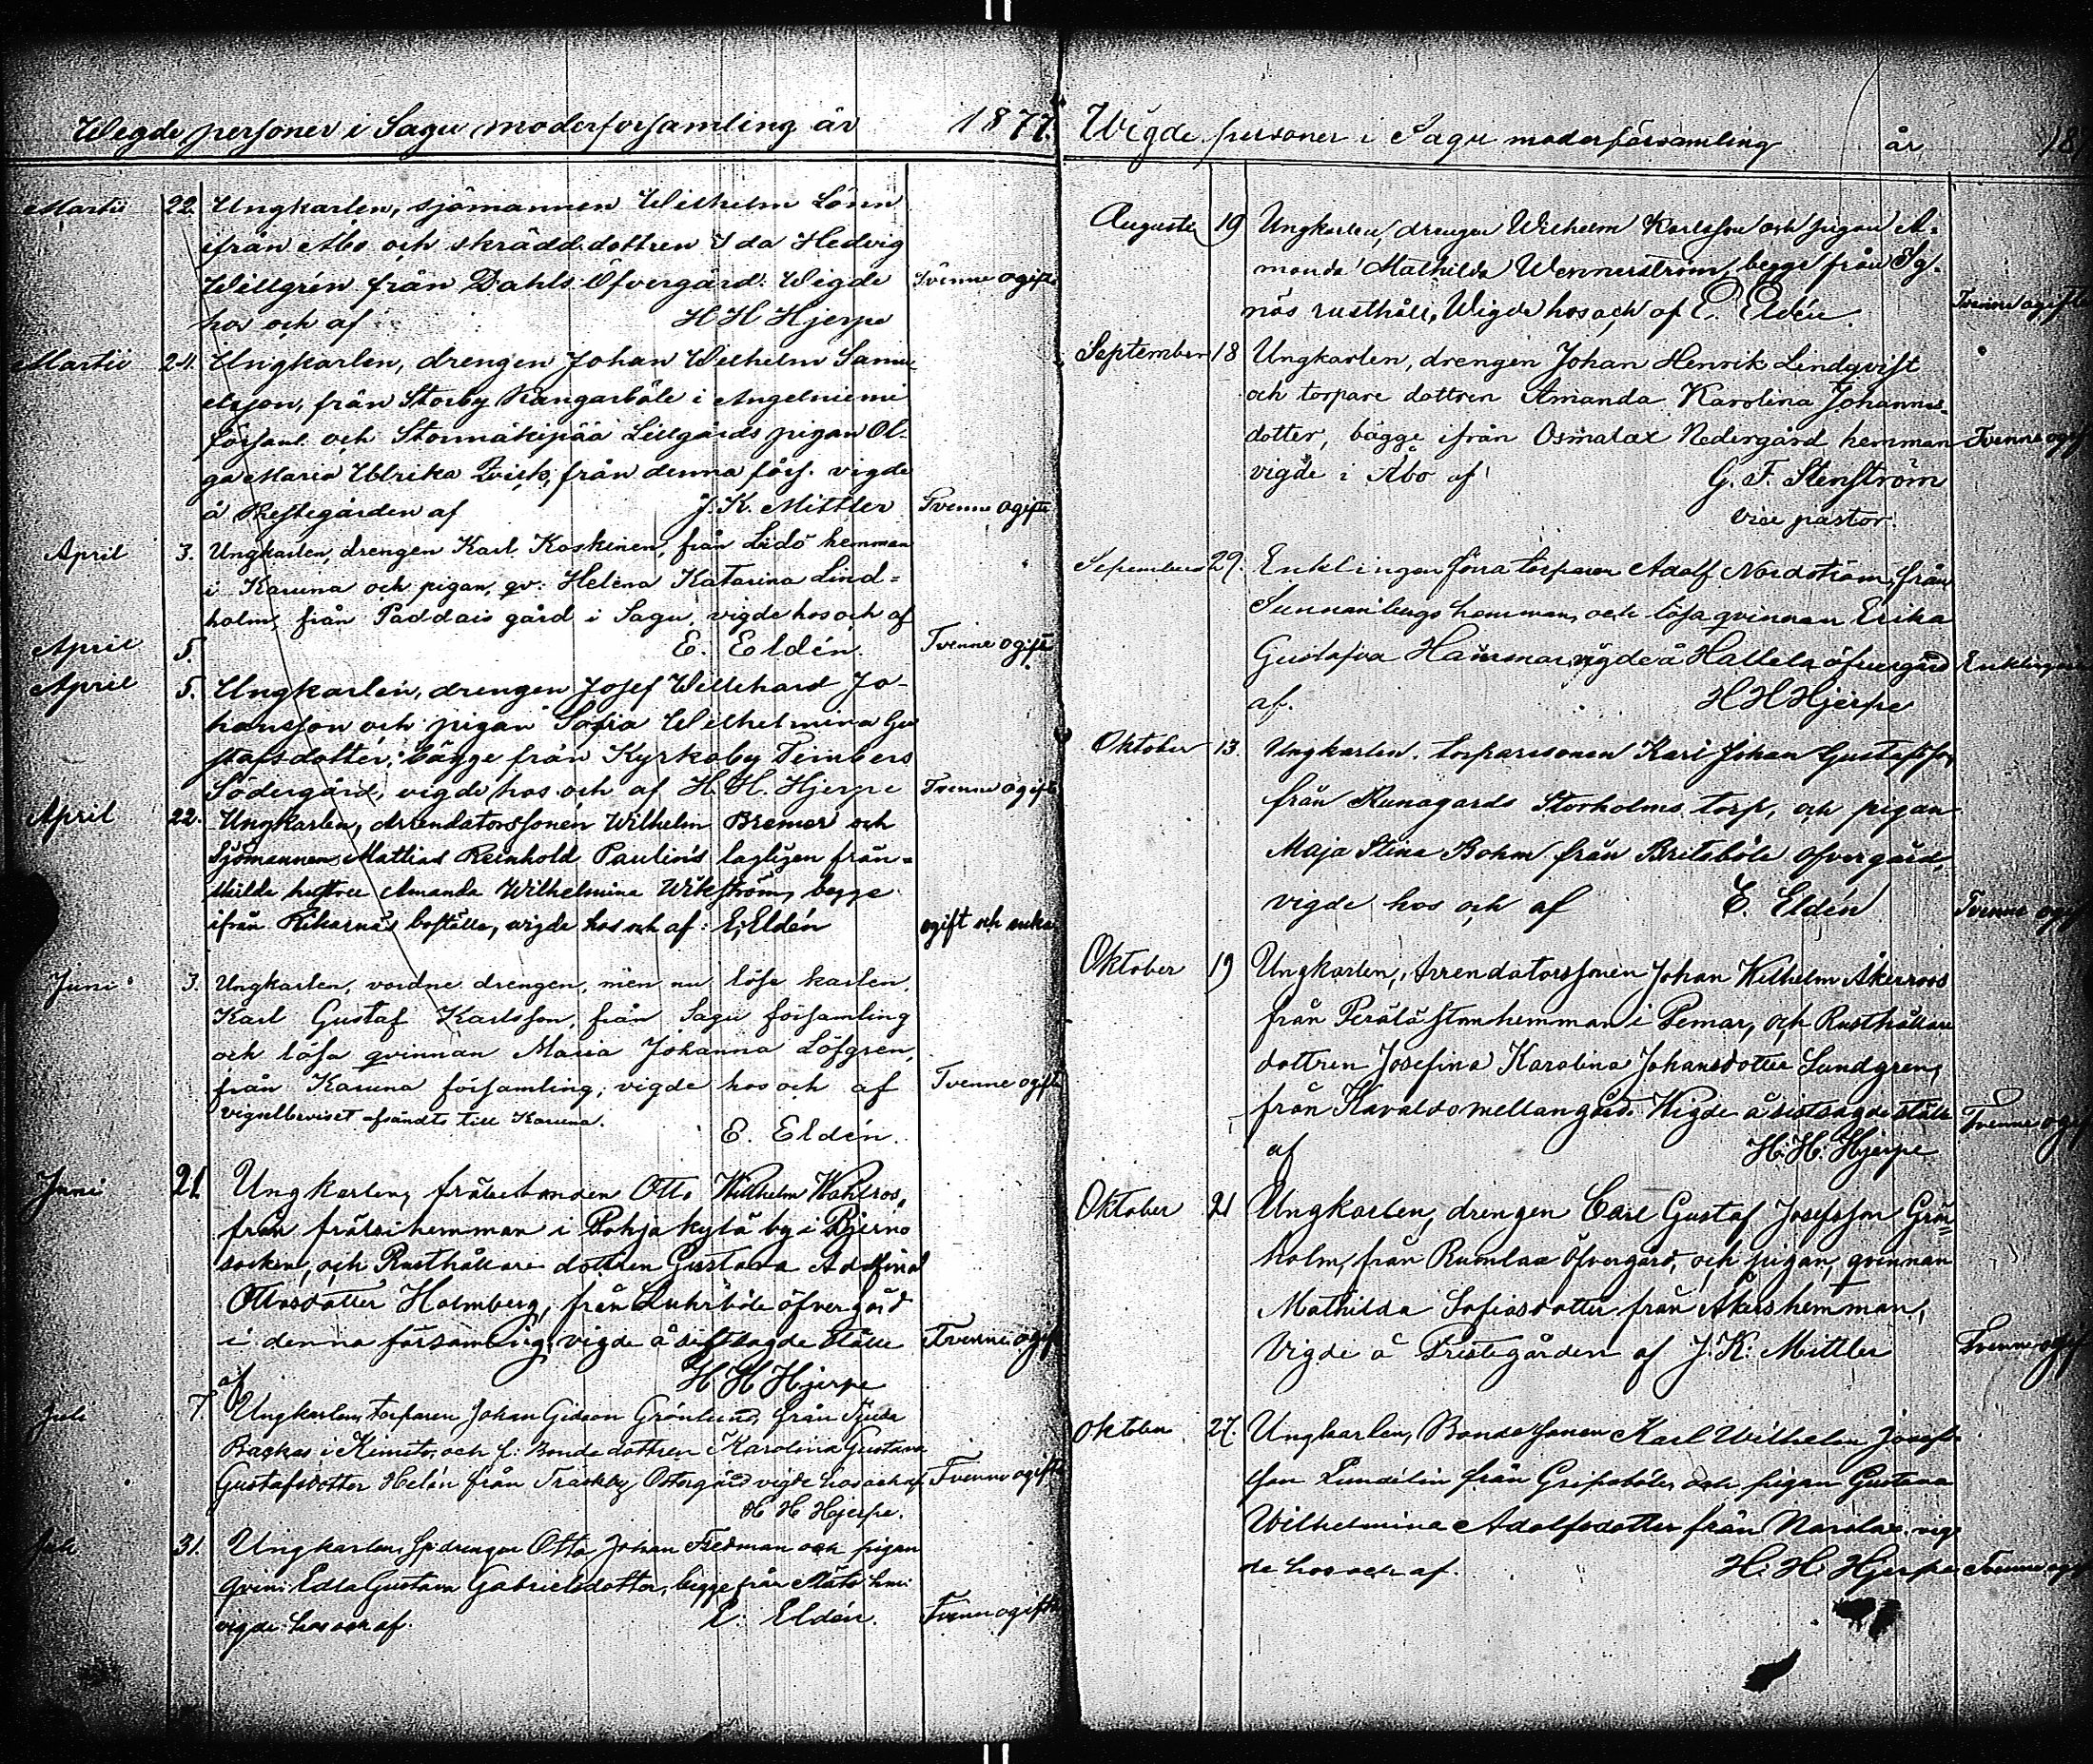 Wigde personer i Sagu moderforsamling år 1877.
Martii 22. Ungkarlen, sjömannen Wilhelm Lönn
ifrån Åbo och skrädd.dottren Ida Hedvig
Willgrén från Dahls Öfvergård. Wigde Tvenne ogifte
hos och af H H Hjerpe
Martii 24. Ungkarlen, drengen Johan Wilhelm Samu-
elsson, från Storby Kangarböle i Angelniemi
församl. och Stormäkipää Lillgårds pigan Ol-
ga Maria Ulrika Qvick, från denna förs. vigde
å Prestegården af J. K. Mittler Tvenne ogifte
April 3. Ungkarlen, drengen Karl Koskinen, från Lidö hemman
i Karuna och pigan, qv: Helena Katarina Lind=
holm, från Paddais gård i Sagu, vigde hos och af
April 5. E. Eldén. Tvenne ogifte
April 5. Ungkarlen, drengen Josef Willehard Jo-
hansson och pigan Sofia Wilhelmina Gu
stafsdotter; bägge från Kyrkoby Timbers
Södergård, vigde hos och af H. H. Hjerpe Tvenne ogifte
April 22. Ungkarlen, arrendatorssonen Wilhelm Bremer och
Sjömannen Mattias Reinhold Paulin's lagligen från=
skilde hustru Amanda Wilhelmina Wikström, begge
ifrån Kikarnäs boställe, vigde hos och af: E. Eldén ogift och enka
Juni 3. Ungkarlen, vordne drengen, men nu löse karlen,
Karl Gustaf Karlsson, från Sagu församling
och lösa qvinnan Maria Johanna Löfgren,
från Karuna församling; vigde hos och af Tvenne ogifte
vigselbeviset afsändts till Karuna.
E. Eldén.
Juni 21 Ungkarlen, frälsebonden Otto Wilhelm Wahlros,
från frälsehemman i Pohjakylä by i Bjerno
socken, och Rusthållare dottren Gustava Adolfina
Ottosdotter Holmberg, från Luhrböle öfvergård
i denna församling, vigde å sistsagde ställe Tvenne ogifte
af H H Hjerpe
Juli 7. Ungkarlen, torparen Johan Gideon Grönlund, från Tjuda
Backas i Kimito, och f: Bonde dottren Karolina Gustava
Gustafsdotter Helén från Träskby Östergård vigde hos och af Tvenne ogifte
H H Hjerpe.
Juli 31. Ungkarlen, drengen Otto Johan Fredman och pigan
qvin: Edla Gustava Gabrielsdotter, begge från hm:
vigde hos och af. E. Eldén. Tvenne ogifte
Wigde personer i Sagu moderförsamling år 18
Augusti 19 Ungkarlen, drengen Wilhelm Karlsson och pigan A=
manda Mathilda Wennerström, begge från Sg-
näs rusthåll, Wigde hos och af E. Eldén. Tvenne ogifte
September 18 Ungkarlen, drengen Johan Henrik Lindqvist
och torpare dottren Amanda Karolina Johannes-
dotter, bägge ifrån Osmalax Nedergård hemman Tvenne ogif
vigde i Åbo af G. F. Stenström
Vice pastor.
September 29. Enklingen förra torparen Adolf Nordström, från
Sunnanbergs hemman, och lösa qvinnan Erika
Gustafva Hammar, vigde å Hallela öfvergård Enkling
af. H H Hjerpe
Oktober 13. Ungkarlen, torparesonen Karl Johan Gustafsson,
från Runagards Storholms torp, och pigan
Maja Stina Bohm från Britsböle Öfvergård,
vigde hos och af E. Eldén Tvenne ogif
Oktober 19 Ungkarlen, Arrendatorssonen Johan Wilhelm Åkerroos
från Perälä stomhemman i Pemar, och Rusthållare
dottren Josefina Karolina Johansdotter Sundgren,
från Kavaldo mellangård. Wigde å sistsagde ställe Tvenne ogif
af H. H. Hjerpe
Oktober 21 Ungkarlen, drengen Carl Gustaf Josefsson Grön-
holm, från Rumlax Öfvergård, och pigan, qvinnan
Mathilda Sofiasdotter från Åkers hemman,
Vigde å Prestegården af J. K. Mittler Tvenne ogif
Oktober 27. Ungkarlen, Bondesonen Karl Wilhelm Josefs-
son Lundelin från Gripsböle, och pigan Gustava
Wilhelmina Adolfsdotter från Narslax, vig-
de hos och af. H. H. Hjerpe Tvenne ogif